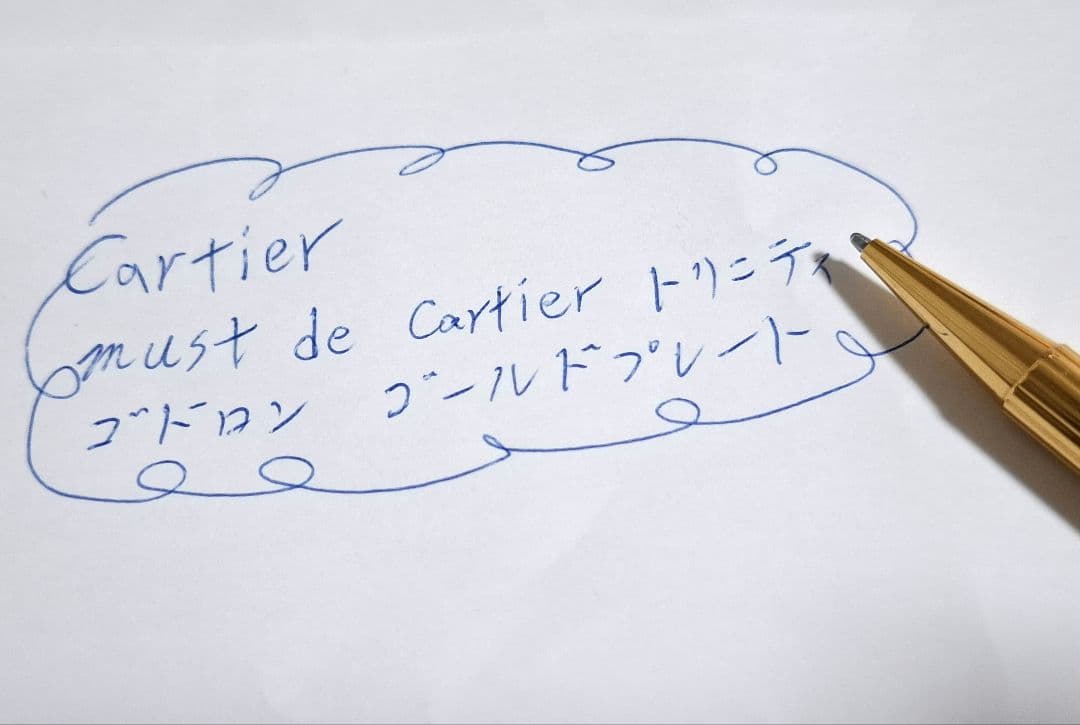 Cartier
must de Cartier トリニティ
ゴドロン ゴールドプレート